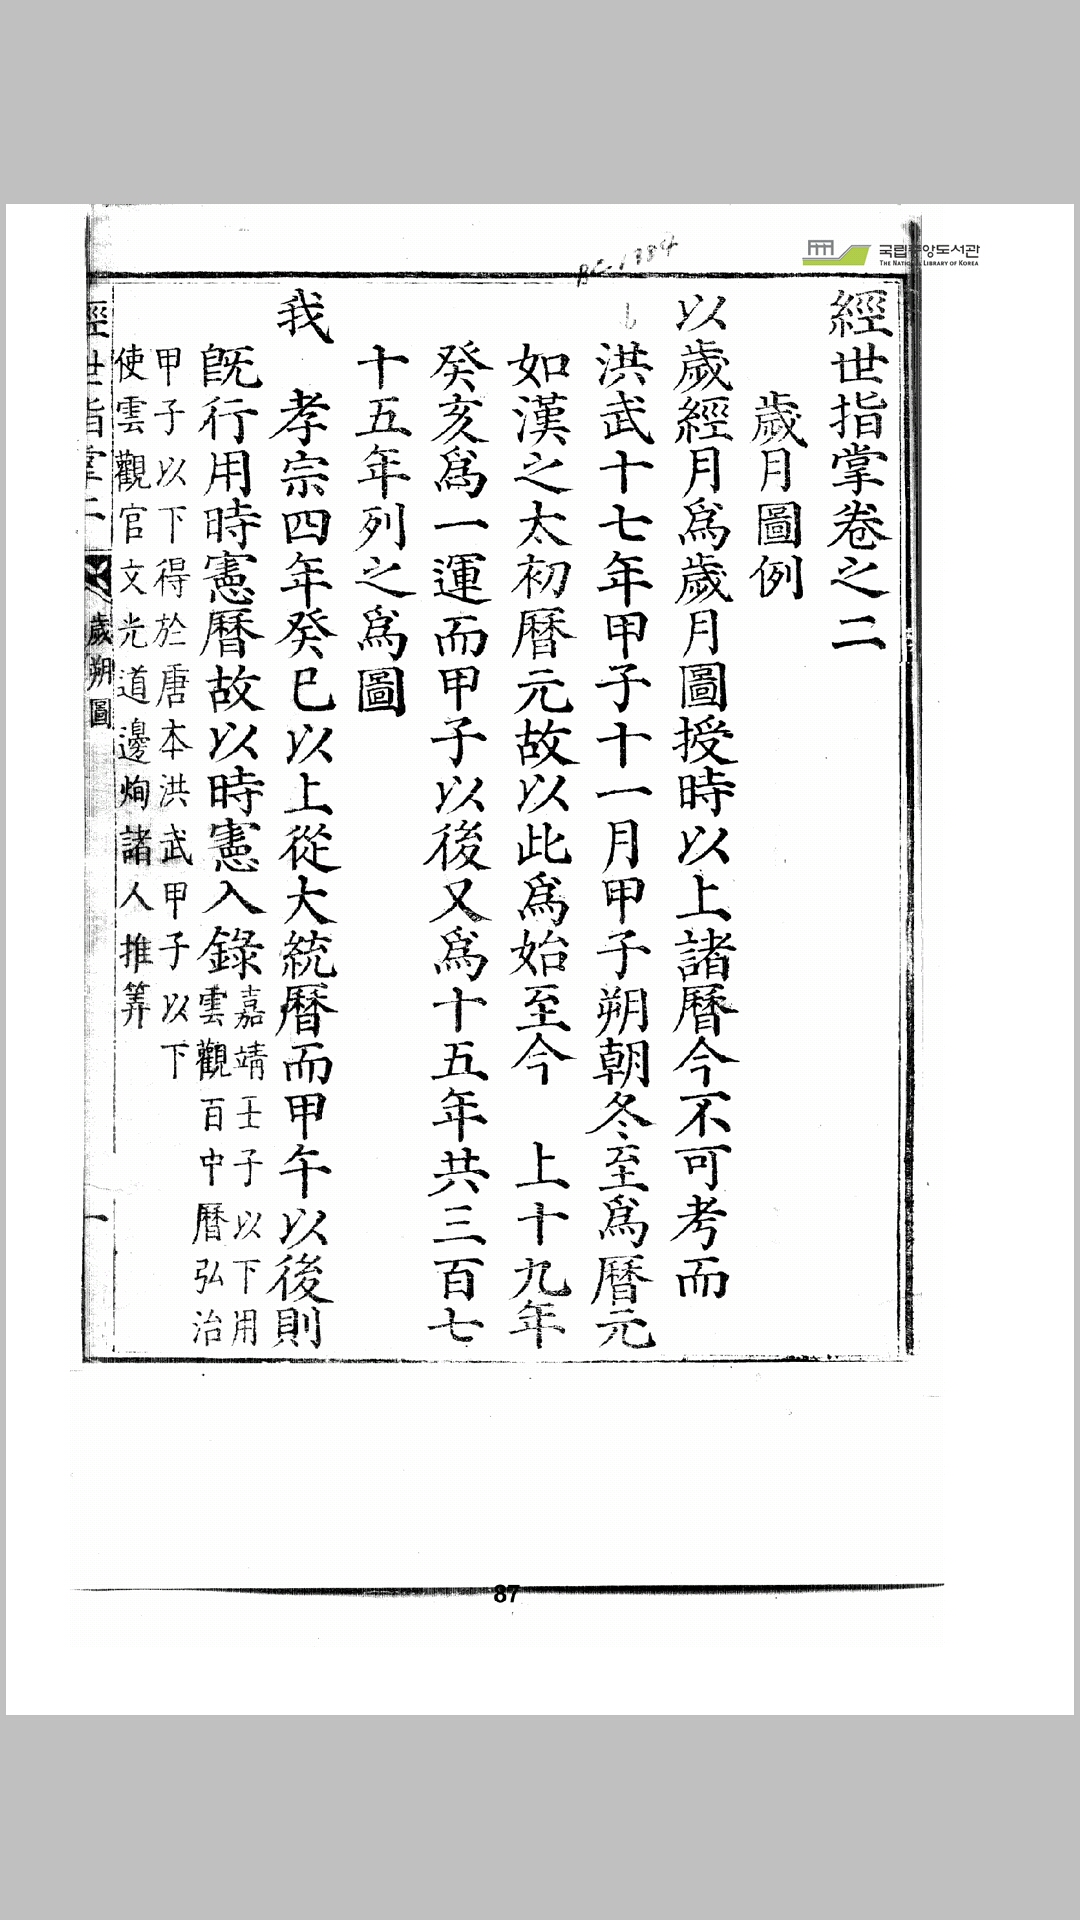 經世指掌卷之二
歲月圖例
以歲經月爲歲月圖授時以上諸曆今不可考而
洪武十七年甲子十一月甲子朔朝冬至爲曆元
如漢之太初曆元故以此爲始至今　上十九年
癸亥爲一運而甲子以後又爲十五年共三百七
十五年列之爲圖
我　孝宗四年癸巳以上從大統曆而甲午以後則
旣行用時憲曆故以時憲入錄
嘉靖壬子以下用
雲觀百中曆弘治
甲子以下得於唐本洪武甲子以下
使雲觀官文光道邊炯諸人推筭
經世指掌二
歲朔圖
一
국립중앙도서관
THE NATIONAL LIBRARY OF KOREA
87